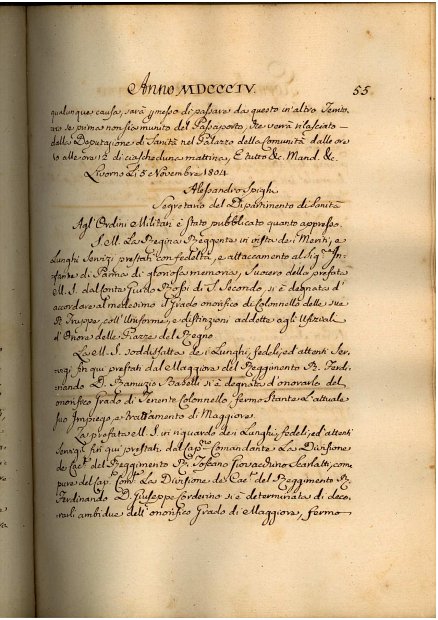 Anno MDCCCIV. 55
qualunque causa, sarà permesso di passare da questo in altro Territo-
rio se prima non sia munito del Passaporto, che verrà rilasciato
dalla Deputazione di Sanità nel Palazzo della Comunità dalle ore
10 alle ore 12 di ciascheduna mattina, E tutto &c. Mand. &c.
Livorno Li 8 Novembre 1804
Alessandro Spigh.
Segretario del Dipartimento di Sanità
Agl'Ordini Militari è stato pubblicato quanto appresso.
S. M. La Regina Reggente in vista dei Meriti, e
Lunghi Servizi prestati con fedeltà, e attaccamento al Sig. In-
fante di Parma di gloriosa memoria, Suocero della prefata
S. M. dal Conte Guido Rossi di S. Secondo, si è degnata d'
accordare al medesimo il Grado onorifico di Colonnello delle sue
R. Truppe, coll'Uniforme, e distinzioni addette agli Ufiziali
d'Onore delle Piazze del Regno
La M. S. soddisfatta dei Lunghi, fedeli, ed attenti Ser-
vizj fin qui prestati dal Maggiore del Reggimento R. Ferdi-
nando D. Ramuzio Isabelli si è degnata d'onorarlo del
onorifico Grado di Tenente Colonnello, fermo Stante L'attuale
suo Impiego, e trattamento di Maggiore.
La prefata M. S. in riguardo dei Lunghi, fedeli, ed attenti
Servizj fin qui prestati dal Cap.no Comandante La Divisione
de Cac.i del Reggimento R. Toscano Giovacchino Scarlatti, come
pure del Cap. Com.te La Divisione de Cac.i del Reggimento R.
Ferdinando D. Giuseppe Corderino si è determinata di deco-
rarli ambidue dell'onorifico Grado di Maggiore, fermo